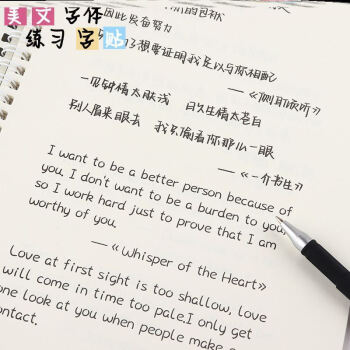 美文字体
练习字帖
因此发奋努力
了想要证明我足以与你相配
——《侧耳倾听》
一见钟情太肤浅 日久生情太苍白
别人眉来眼去 我只偷看你那么一眼
——《一介书生》
I want to be a better person because of
you. I don't want to be a burden to you,
so I work hard just to prove that I am
worthy of you.
——《Whisper of the Heart》
Love at first sight is too shallow, love
will come in time too pale.I only get
one look at you when people make e
contact.